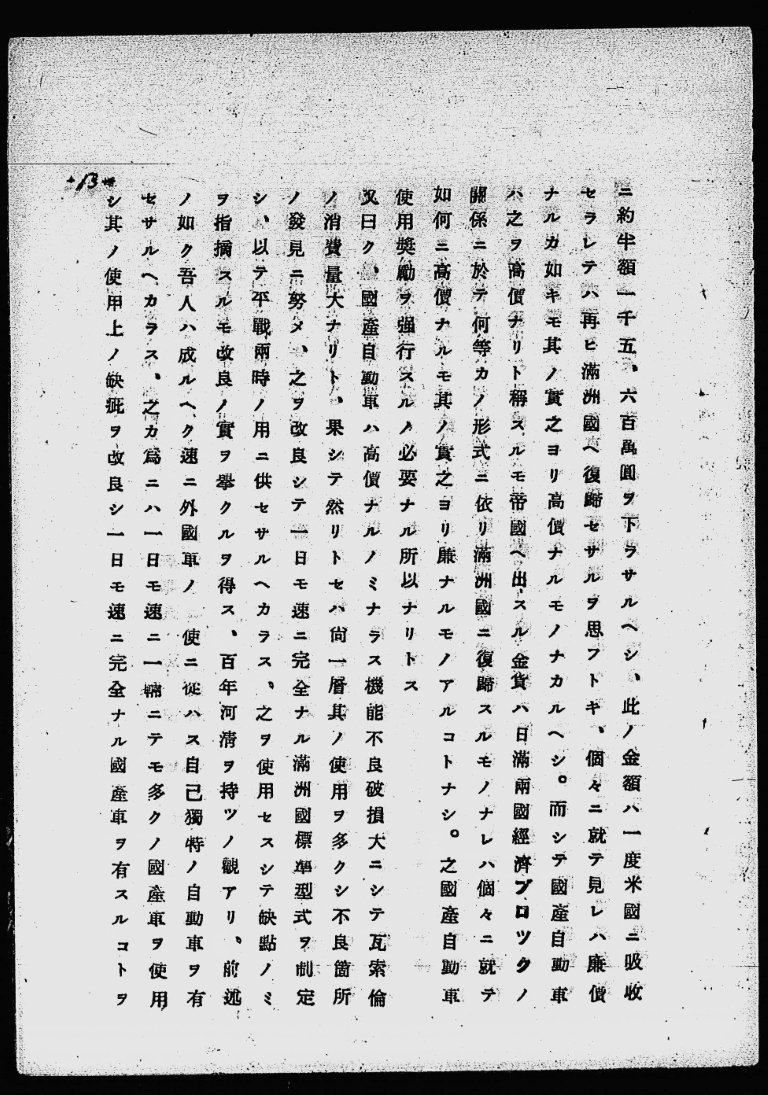 ニ約半額一千五、六百萬圓ヲ下ラサルヘシ、此ノ金額ハ一度米國ニ吸收
セラレテハ再ヒ滿洲國ヘ復歸セサルヲ思フトキ、個々ニ就テ見レハ廉價
ナルカ如キモ其ノ實之ヨリ高價ナルモノナカルヘシ。而シテ國產自動車
ハ之ヲ高價ナリト稱スルモ帝國ヘ出スル金貨ハ日滿兩國經濟ブロツクノ
關係ニ於テ何等カノ形式ニ依リ滿洲國ニ復歸スルモノナレハ個々ニ就テ
如何ニ高價ナルモ其ノ實之ヨリ廉ナルモノアルコトナシ。之國產自動車
使用獎勵ヲ强行スルノ必要ナル所以ナリトス
又曰ク、國產自動車ハ高價ナルノミナラス機能不良破損大ニシテ瓦索倫
ノ消費量大ナリト、果シテ然リトセハ尙一層其ノ使用ヲ多クシ不良箇所
ノ發見ニ努メ、之ヲ改良シテ一日モ速ニ完全ナル滿洲國標準型式ヲ制定
シ、以テ平戰兩時ノ用ニ供セサルヘカラス、之ヲ使用セスシテ缺點ノミ
ヲ指摘スルモ改良ノ實ヲ擧クルヲ得ス、百年河淸ヲ持ツノ觀アリ、前述
ノ如ク吾人ハ成ルヘク速ニ外國車ノ 使ニ從ハス自己獨特ノ自動車ヲ有
セサルヘカラス、之カ爲ニハ一日モ速ニ一輛ニテモ多クノ國產車ヲ使用
シ其ノ使用上ノ缺疵ヲ改良シ一日モ速ニ完全ナル國產車ヲ有スルコトヲ
13